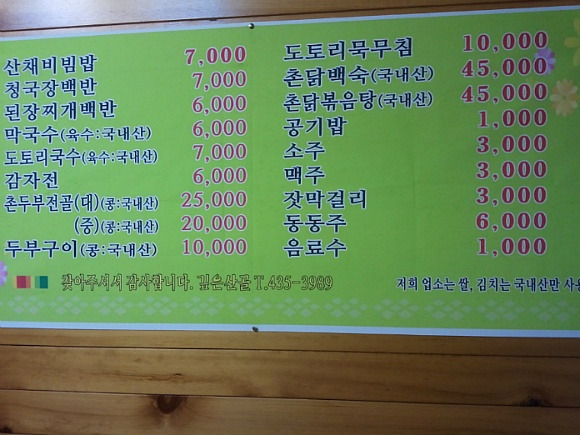 산채비빔밥 7,000
청국장백반 7,000
된장찌개백반 6,000
막국수(육수:국내산) 6,000
도토리국수(육수:국내산) 7,000
감자전 6,000
촌두부전골(대)(콩:국내산) 25,000
(중)(콩:국내산) 20,000
두부구이(콩:국내산) 10,000
도토리묵무침 10,000
촌닭백숙(국내산) 45,000
촌닭볶음탕(국내산) 45,000
공기밥 1,000
소주 3,000
맥주 3,000
잣막걸리 3,000
동동주 6,000
음료수 1,000
찾아주셔서 감사합니다. 깊은산골 T.435-3989
저희 업소는 쌀, 김치는 국내산만 사용